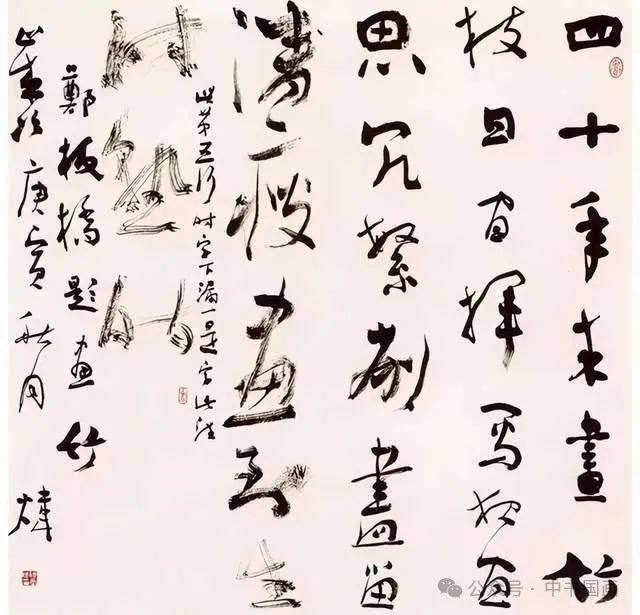 四十年来畫竹
枝日间揮写夜间
思冗繁削盡留
清瘦画到生
时熟时
此第五行时字下漏一是字 此注
鄭板橋題画竹
庚寅秋月 煒
公众号·中书国画